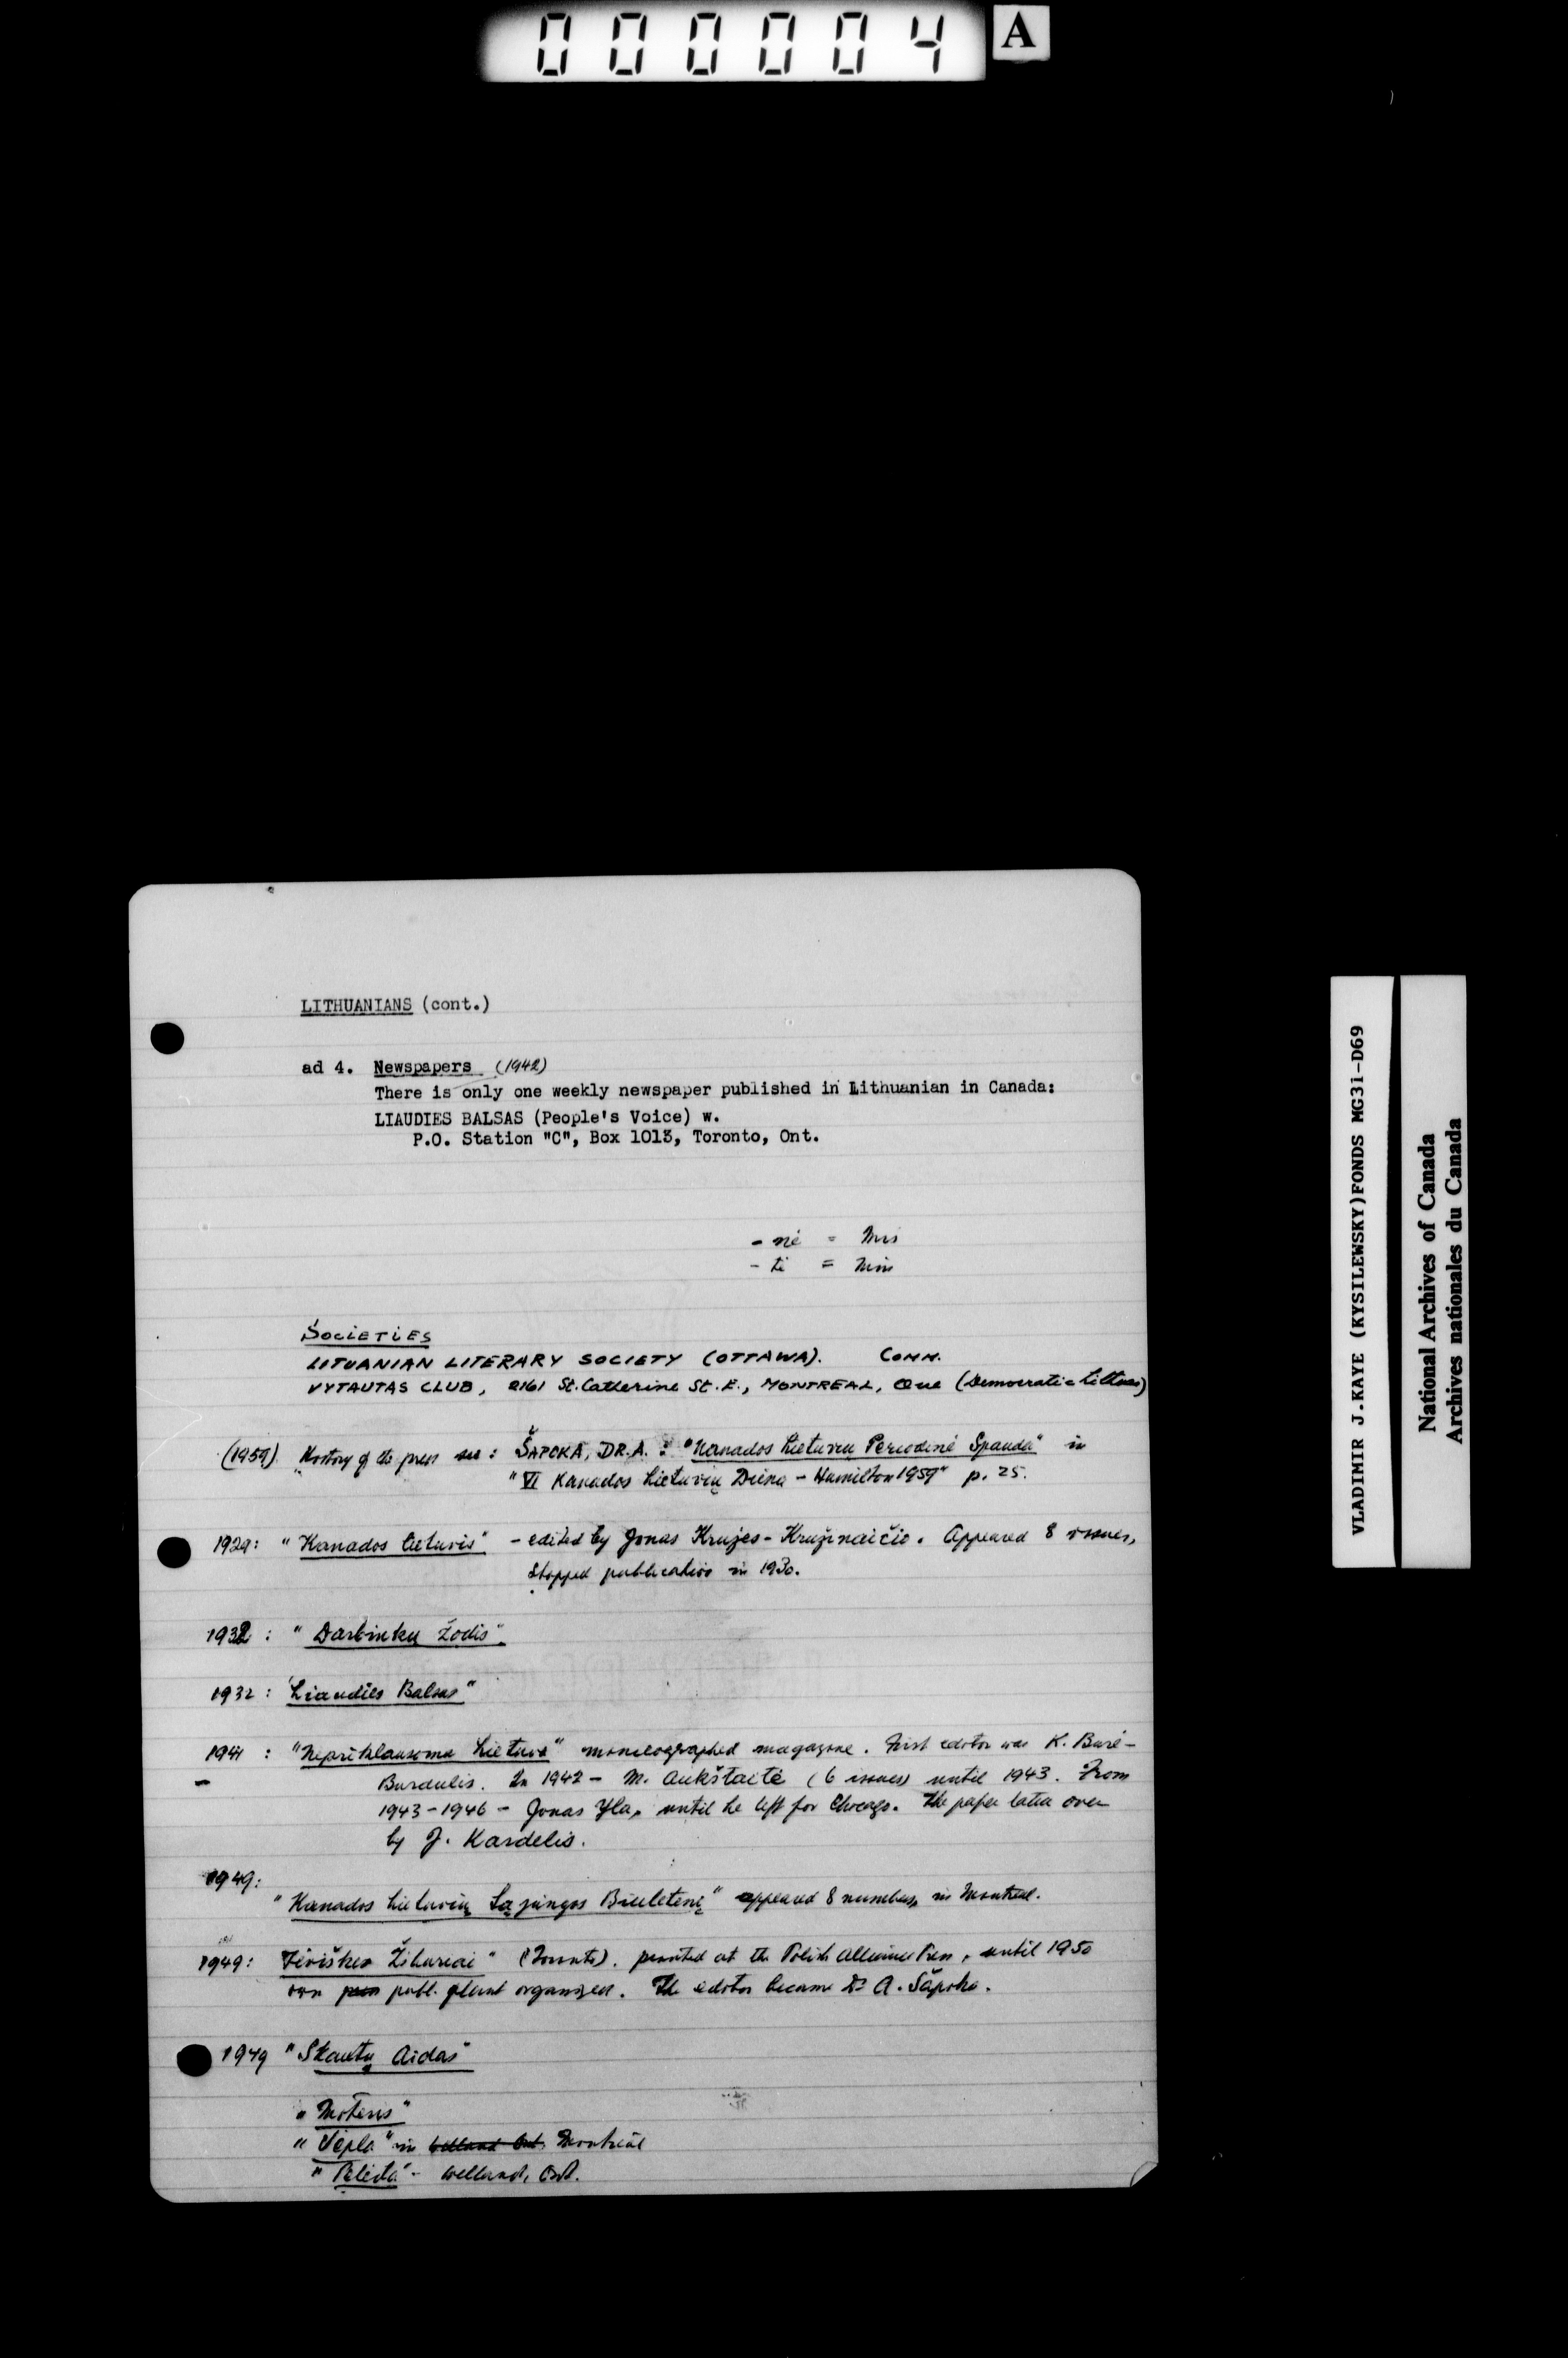 000004 A
LITHUANIANS (cont.)
ad 4. Newspapers (1942)
There is only one weekly newspaper published in Lithuanian in Canada:
LIAUDIES BALSAS (People's Voice) w.
P.O. Station "C", Box 1013, Toronto, Ont.
- nė = Mrs
- tė = Miss
SOCIETIES
LITUANIAN LITERARY SOCIETY (OTTAWA). COMM.
VYTAUTAS CLUB, 2161 St. Catherine St. E., MONTREAL, Que (Democratic
(1959) History of the press see: ŠAPOKA, DR. A. : "Kanados Lietuvių Periodinė Spauda" in
"VI Kanados Lietuvių Diena - Hamilton 1959" p. 25.
1929: "Kanados Lietuvis" - edited by Jonas Appeared 8 issues,
stopped publication in 1930.
1932 : "Darbininkų Žodis"
1932 : "Liaudies Balsas"
1941 : "Nepriklausoma Lietuva" mimeographed magazine. First editor was K. Burė-
Burdulis. In 1942 - M. Aukštaitė (6 issues) until 1943. From
1943-1946 - Jonas Yla, until he left for Chicago. The paper over
by J. Kardelis.
1949:
"Kanados Lietuvių Sąjungos Biuletenį" appeared 8 numbers in Montreal.
1949: Tėviškės Žiburiai" (Toronto). printed at the Polish Alliance Press, until 1950
own publ. plant organized. The editor became Dr A. Šapoka.
1949 "Skautų Aidas"
"Moteris"
in Welland Ont. Montreal
- Welland, Ont.
VLADIMIR J.KAYE (KYSILEWSKY)FONDS MG31-D69
National Archives of Canada
Archives nationales du Canada